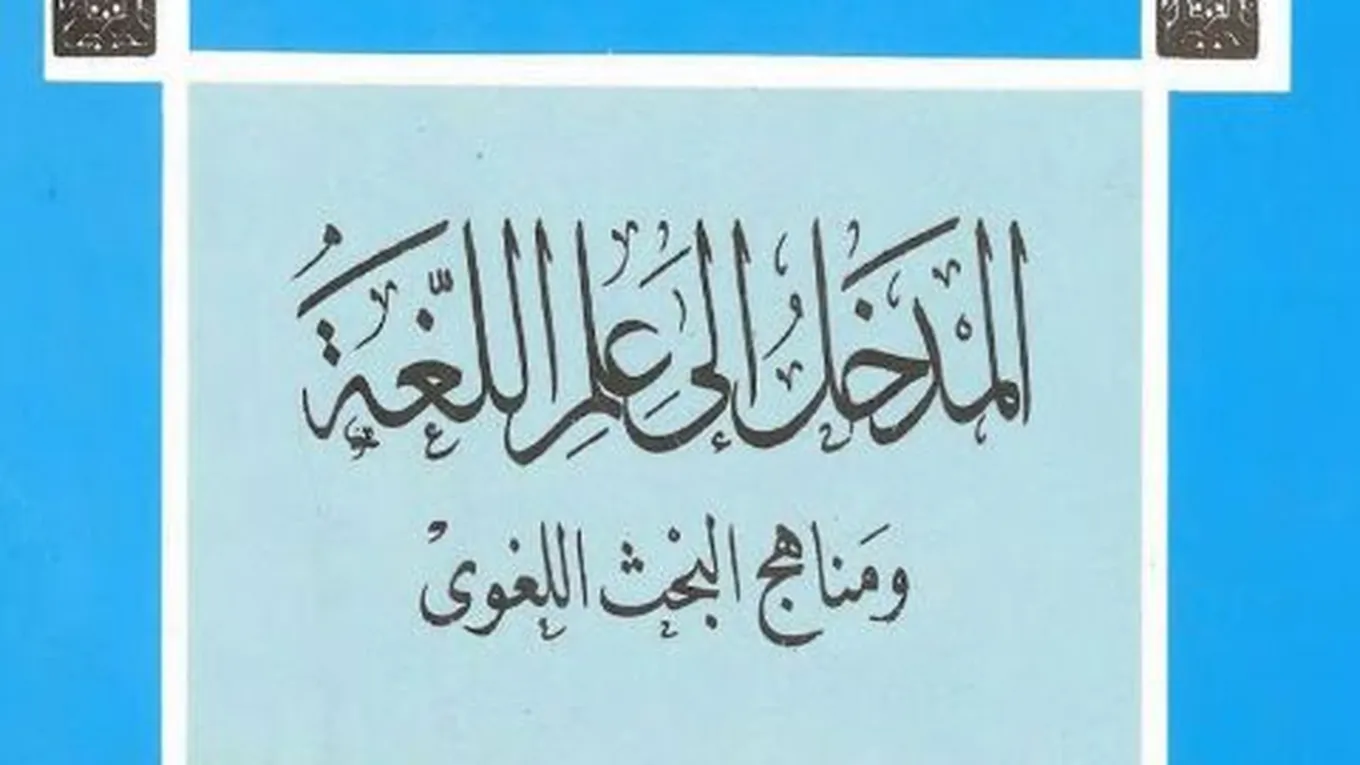 المدخل إلى علم اللغة
ومناهج البحث اللغوى